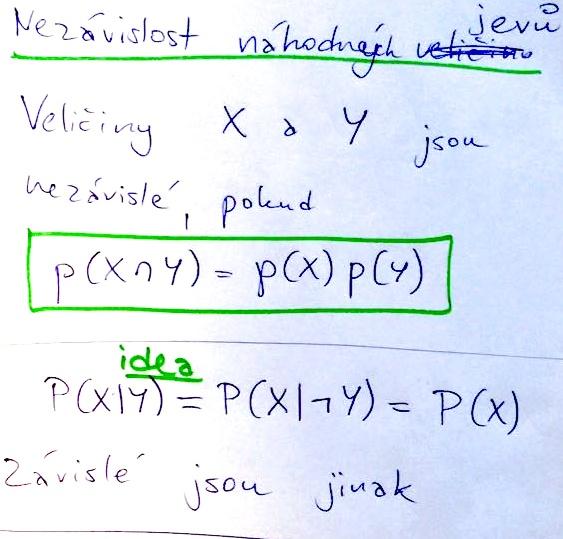 Nezávislost náhodných jevů
Veličiny X a Y jsou
nezávislé, pokud
p(X∩Y) = p(X) p(Y)
idea
P(X|Y) = P(X|¬Y) = P(X)
Závislé jsou jinak